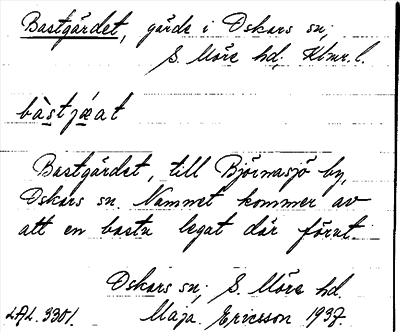 Bastgärdet, gärde i Oskars sn,
S. Möre hd, Klmr. l.
bàstjæ̀at
Bastgärdet, till Björnasjö by,
Oskars sn. Namnet kommer av
att en bastu legat där förut.
Oskars sn, S. Möre hd.
LAL. 3301. Maja Ericsson 1937.